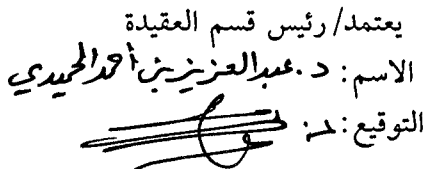 يعتمد/ رئيس قسم العقيدة
الاسم: د. عبدالعزيز بن أحمد الحميدي
التوقيع: